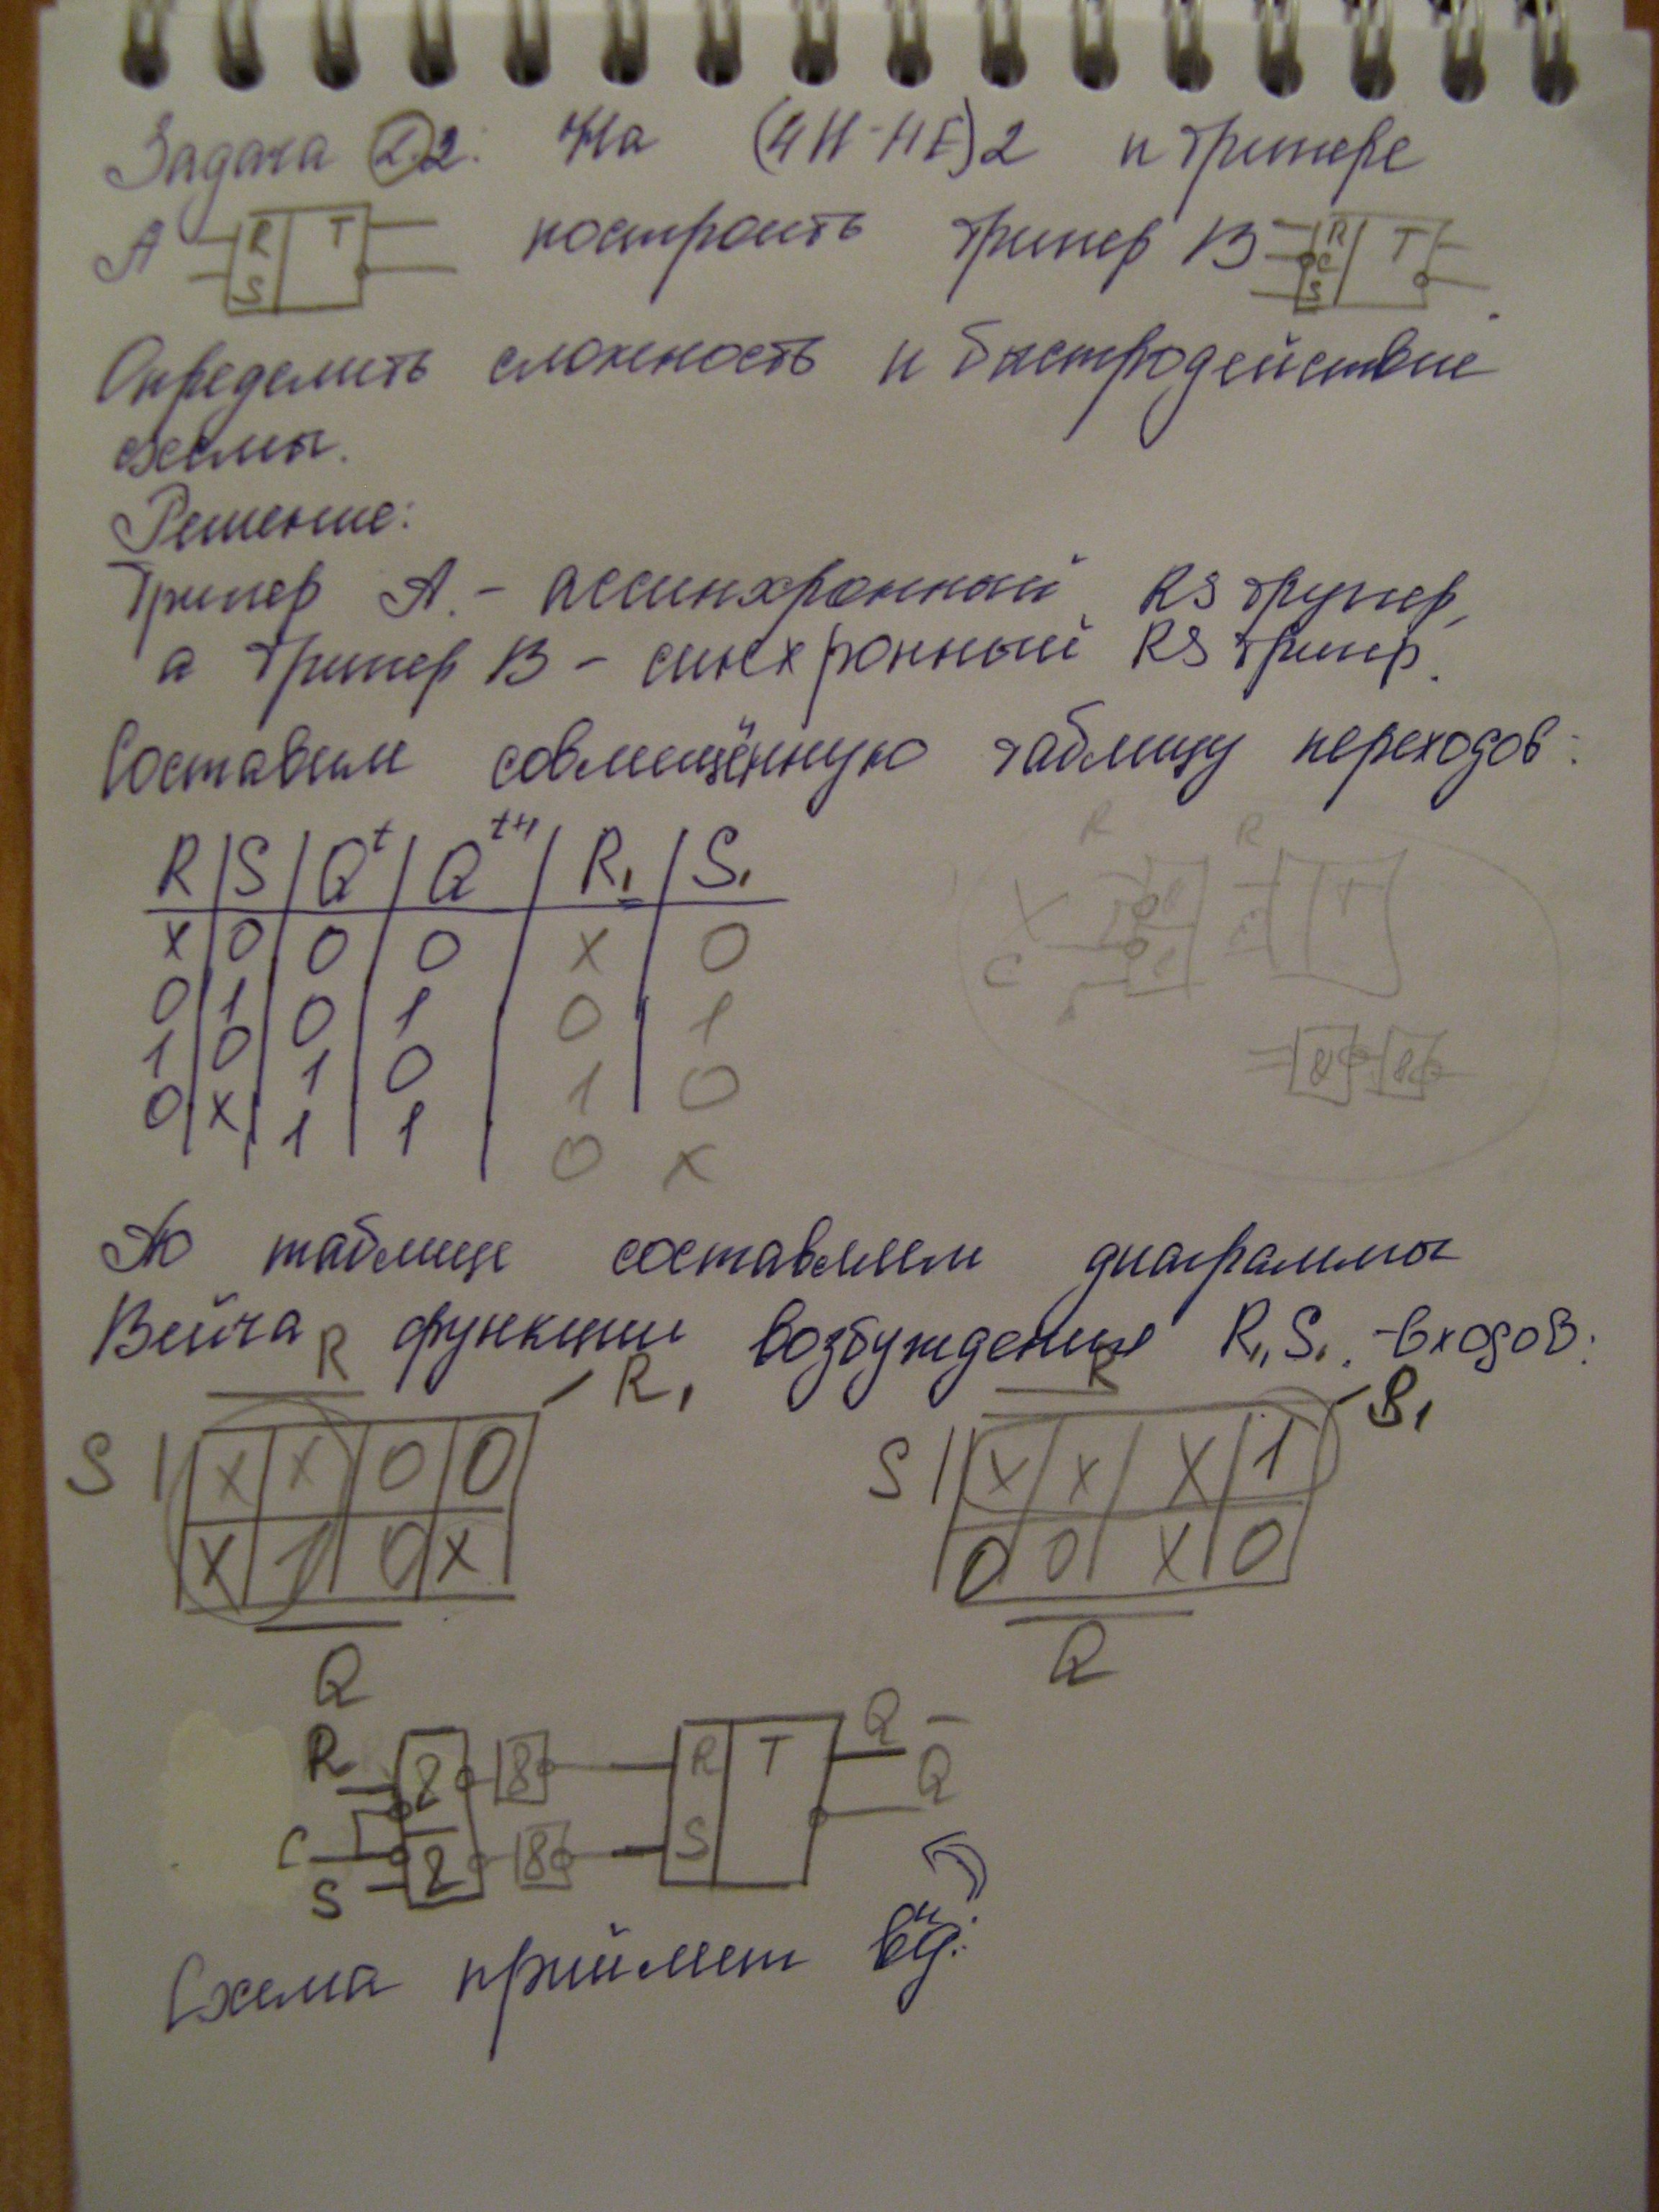 Задача 2.2: На (4И-НЕ)2 и тригере
A R S T построить тригер B R C S T.
Определить сложность и быстродействие
схемы.
Решение:
Тригер A. - ассинхронный RS тригер,
а тригер B - синхронный RS тригер.
Составим совмещённую таблицу переходов:
R S Qᵗ Qᵗ⁺¹ R₁ S₁
x 0 0 0 x 0
0 1 0 1 0 1
1 0 1 0 1 0
0 x 1 1 0 x
R R
C T
8 8
По таблице составляем диаграммы
Вейча функции возбуждения R₁, S₁ -входов:
R R₁ R S₁
S x x 0 0 S x x x 1
x 1 0 x 0 0 x 0
Q Q
R & & R T Q
C Q̅
S & & S
Схема приймет вид: